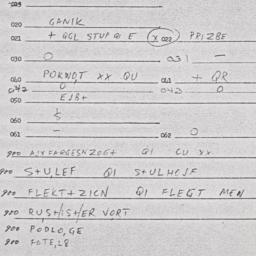 020 GANIK
021 + GGL STUP Q E x 022 PRIZBE
030 0 031 -
040 POKNOT XX QU 041 + QR
042 0 043 0
050 EJB+
060
061 - 062 0
900 QI CU XX
900 S+U,LEF QI S+ULHCJF
900 FLEKT+ZICN QI FLEGT MEN
900 RUS+IS+ER VORT
900 PODLO,GE
900 FOTE,LB